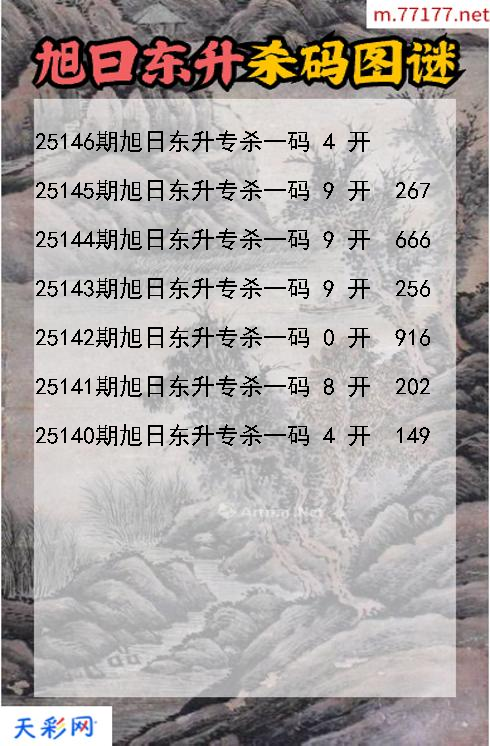 m.77177.net
旭日东升杀码图谜
25146期旭日东升专杀一码 4 开
25145期旭日东升专杀一码 9 开 267
25144期旭日东升专杀一码 9 开 666
25143期旭日东升专杀一码 9 开 256
25142期旭日东升专杀一码 0 开 916
25141期旭日东升专杀一码 8 开 202
25140期旭日东升专杀一码 4 开 149
天彩网